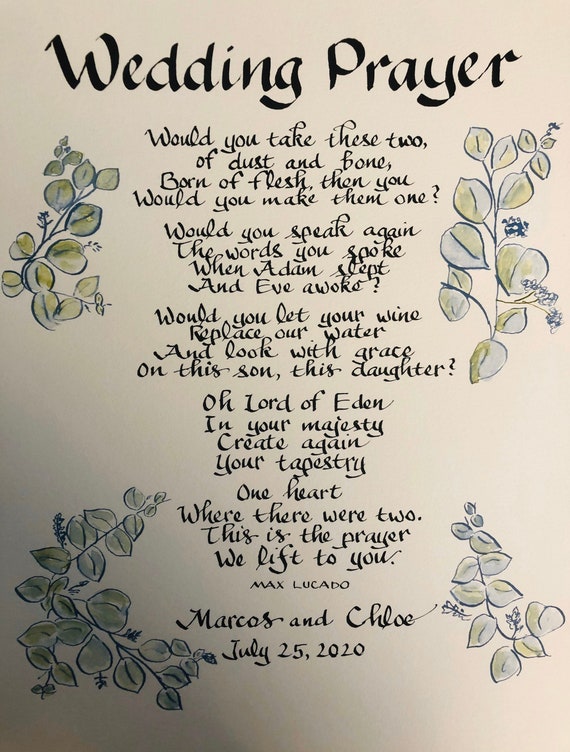 Wedding Prayer
Would you take these two,
of dust and bone,
Born of flesh, then you
Would you make them one?
Would you speak again
The words you spoke
When Adam slept
And Eve awoke?
Would you let your wine
Replace our water
And look with grace
On this son, this daughter?
Oh Lord of Eden
In your majesty
Create again
Your tapestry
One heart
Where there were two.
This is the prayer
We lift to you.
MAX LUCADO
Marcos and Chloe
July 25, 2020